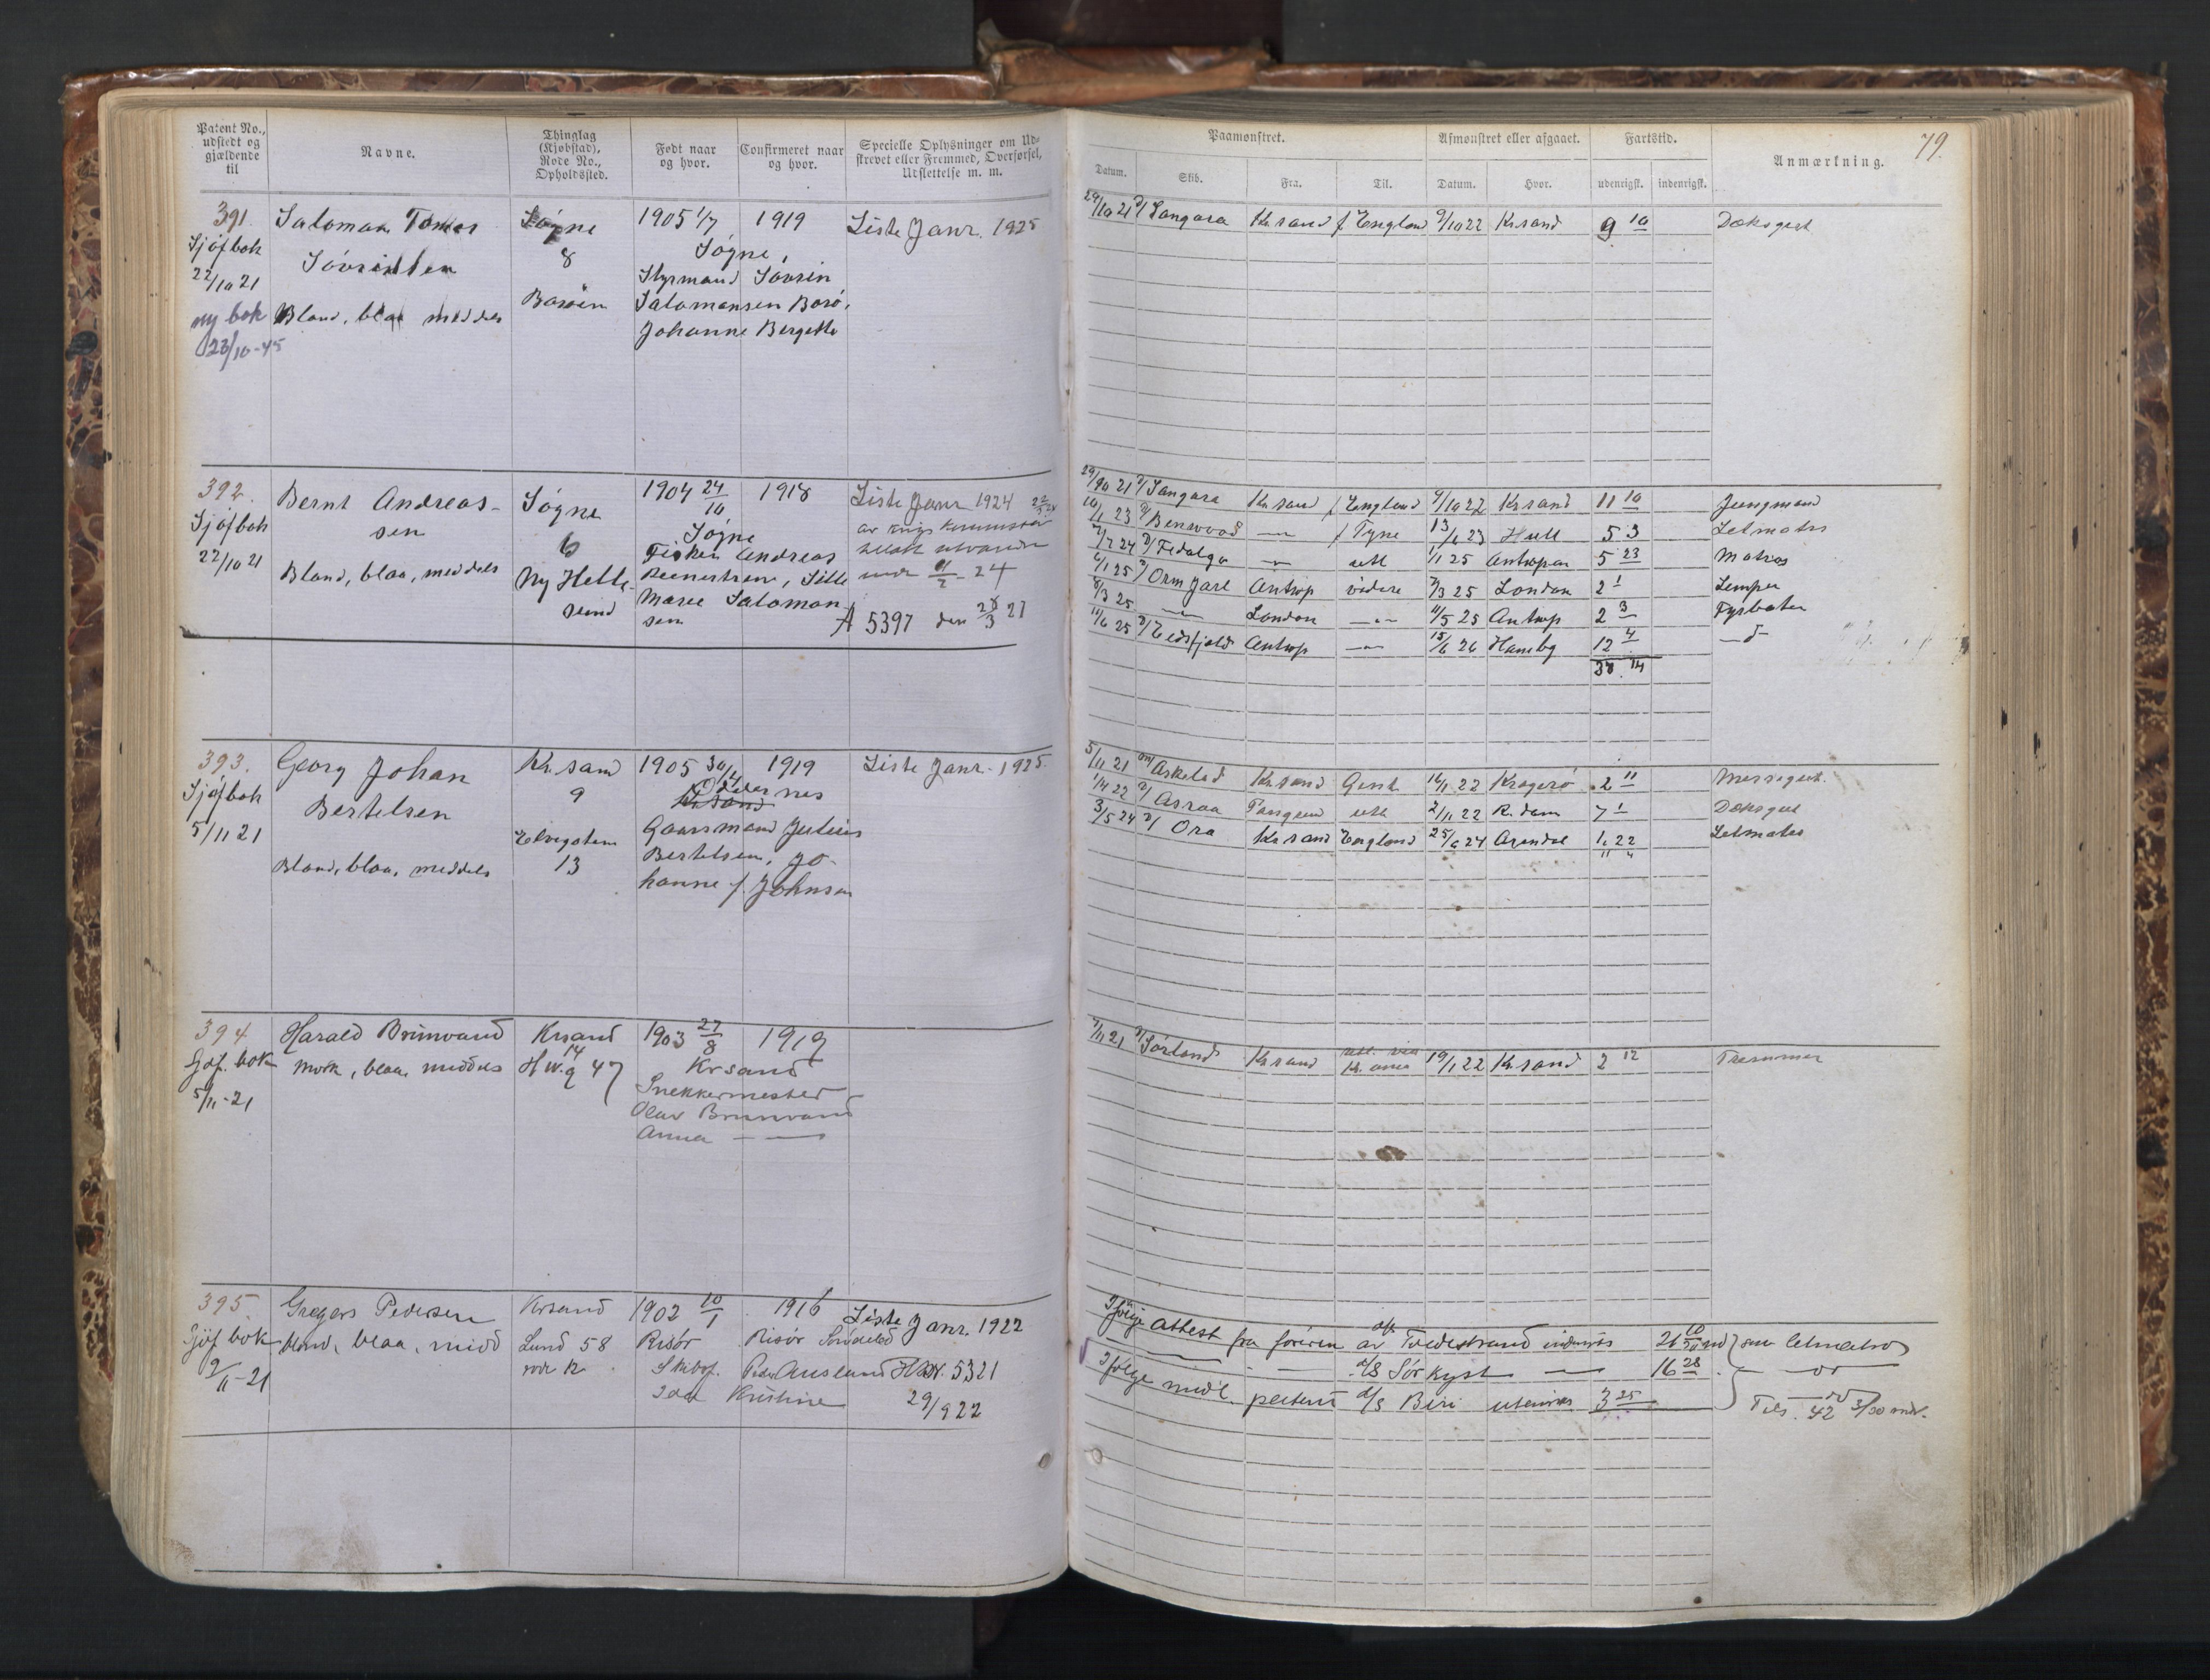 Patent No.,
udstedt og
gjældende
til
Navne.
Thinglag
(Kjøbstad),
Rode No.,
Opholdssted.
Født naar
og hvor.
Confirmeret naar
og hvor.
Specielle Oplysninger om Ud-
skrevet eller Fremmed, Overførsel,
Udslettelse m. m.
391.
Sjøfbok
22/10 21
ny bok
23/10-45
Salomon Tomas
Søvrin
Blond, blaa meddels
Søgne
8
Borøen
1905 1/7
1919
Søgne,
Styrmand Søvrin
Salomonsen Borø,
Johanne Bergette
Liste Janr. 1925
392.
Sjøfbok
22/10 21
Bernt Andreas-
sen
Blond, blaa, meddels
Søgne
6
Ny Helle-
sund
1904 24/10
1918
Søgne
Fisker Andreas
Marie Salomon-
sen
Liste Janr 1924
av krigskommissær
tillatt utvandre
under 11/2-24
A 5397 den 28/3 27
393.
Sjøfbok
5/11 21
Georg Johan
Bertelsen
Blond, blaa, meddels
Kr.sand
9
Elvegaten
13
1905 30/4
1919
Oddernes
Kr.sand
Gaarsmand Julius
Bertelsen, Jo-
hanne f. Johnsen
Liste Janr. 1925.
394
Sjøf. bok
5/11-21
Harald Brunvand
mørk, blaa, middels
Krsand
14
H.W.g 47
1903 27/8
1919
Krsand
Snekkermester
Olav Brunvand
Anna — —
395
Sjøf bok
9/11-21
Gregers Pedersen
blond, blaa, midd
Krsand
Lund 58
rode 12
1902 10/1
1916
Risør
Risør
Skibsf. Peder Ausland
Ida Kristine
Liste Janr. 1922
Hov. 5321
29/9 22
79.
Paamønstret.
Afmønstret eller afgaaet.
Fartstid.
Anmærkning.
Datum.
Skib.
Fra.
Til.
Datum.
Hvor.
udenrigsk.
indenrigsk.
29/10 21 D/ Sangara Kr.sand f England 9/10 22 Kr.sand 9 10 Dæksgut
29/10 21 D/ Sangara Kr.sand f England 9/10 22 Kr.sand 11 10 Jungmand
10/1 23 D/ Benwood —"— f Tyne 13/6 23 Hull 5 3 Letmatros
D/ Fedalga —"— utl 1/1 25 Antwpen 5 23 Matros
6/1 25 D/ Orm Jarl Antwp videre 7/3 25 London 2 1 Lemper
8/3 25 —"— London —"— 11/5 25 Antwp 2 3 Fyrbøter
11/6 25 D/ Eidsfjord Antwp —"— 15/6 26 Hambg 12 4 —d—
38 14
5/11 21 Askelad Kr.sand Gent 16/1 22 Kragerø 2 11 Messegut.
1/4 22 D/ Asraa Tangen utl 2/11 22 R.dam 7 1 Dæksgut
3/5 24 D/ Ora Kr.sand England 25/6 24 Arendal 1. 22 Letmatros
11 4
7/11 21 D/ Sørland Kr.sand utl. via
Kr.ania 19/1 22 Kr.sand 2 12 Trimmer
Ifølge attest fra føreren av D/S Tvedestrand indenriks 21 10/30 md } som letmatros
— — D/S Sørkyst — 16 28 — do —
Ifølge mdl. patent D/S Biri utenriks 3 25 — do —
Tils. 42 3/30 mdr.